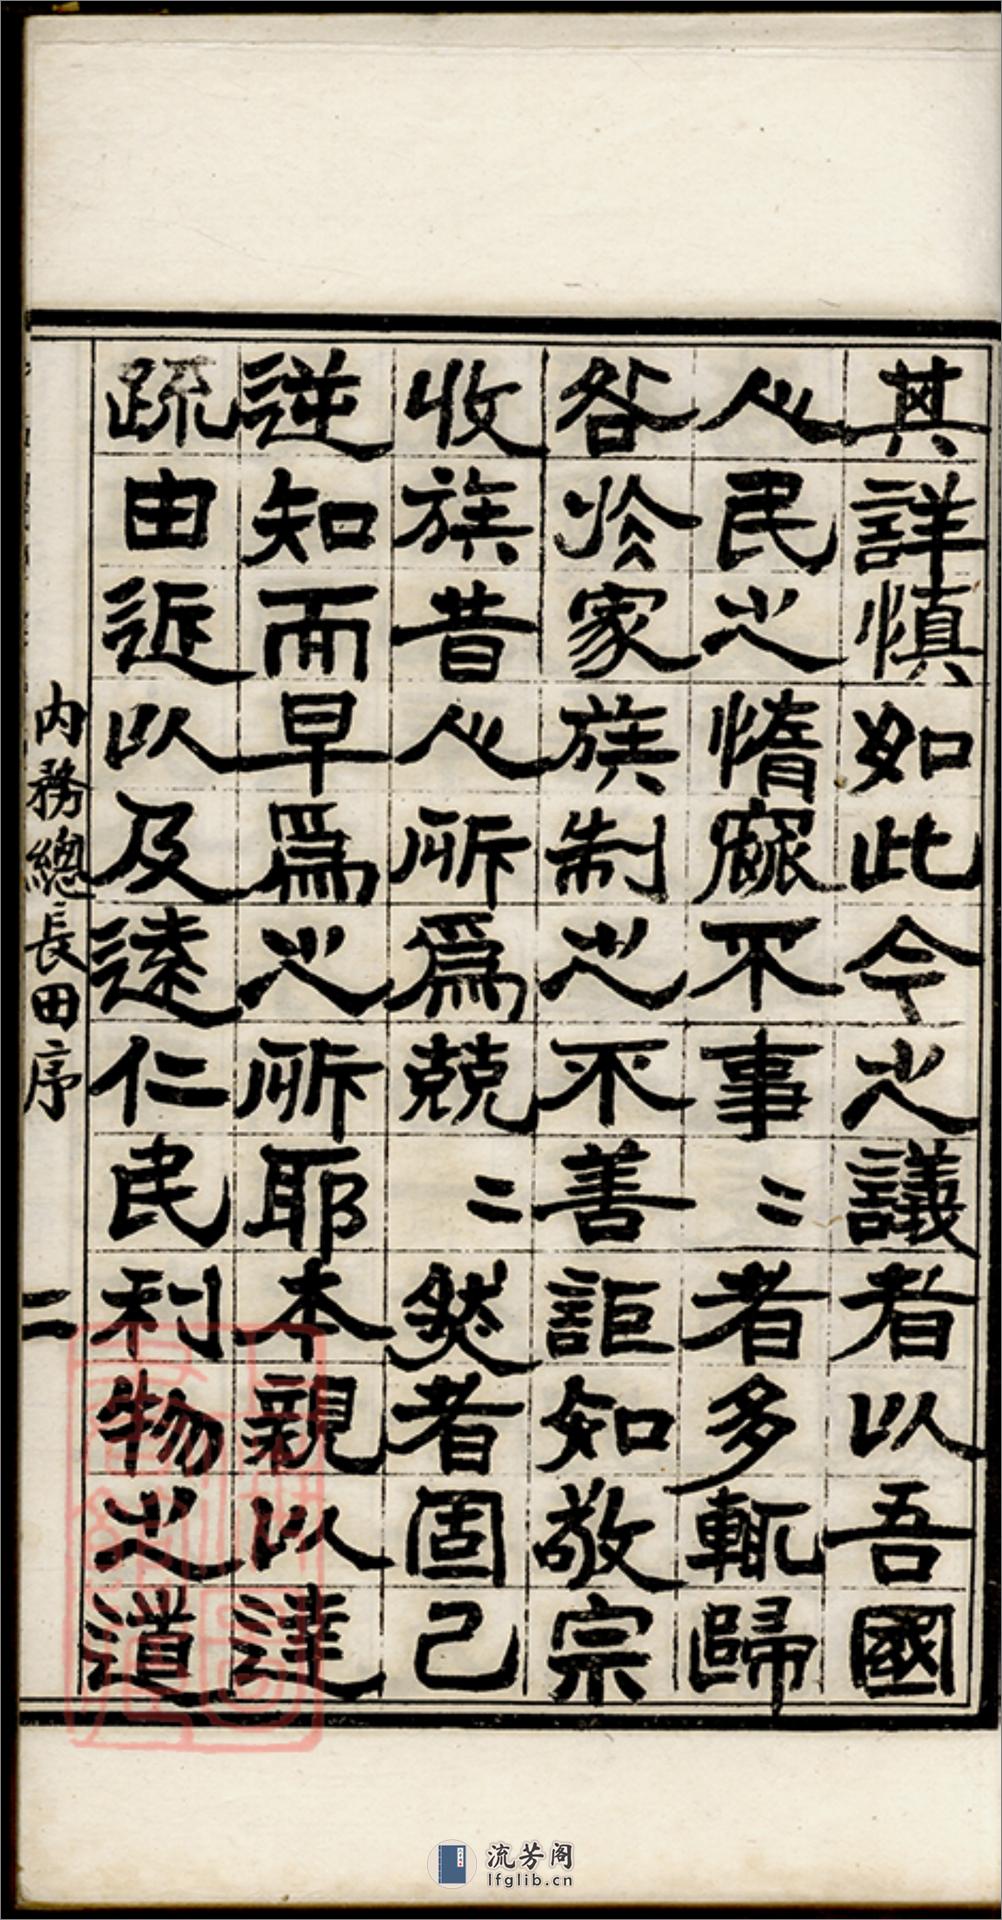 其詳慎如此今之議者以吾國
人民之惰窳不事二者多輒歸
咎於家族制之不善詎知敬宗
收族昔人所爲兢二然者固己
逆知而早爲之所耶本親以達
疏由近以及遠仁民利物之道
内務總長田序
二
流芳阁
lfglib.cn